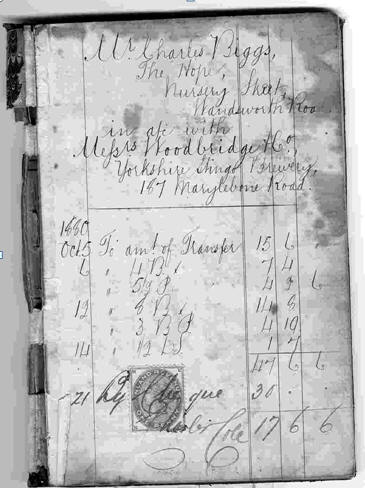 Mr. Charles Biggs,
The Hope,
Nursery Street,
Wandsworth Roa
in a/c with
Messrs Woodbridge & Co,
Yorkshire Stingo Brewery,
187 Marylebone Road
1880
Oct 5 To amt of Transfer 15 6 "
6 " 4 B 7 4
" 4 6
12 " 8 B 14 8
" 3 B 4 19
14 " 12 1 7
47 6 6
21 By Cheque 30 " "
Cole 17 6 6